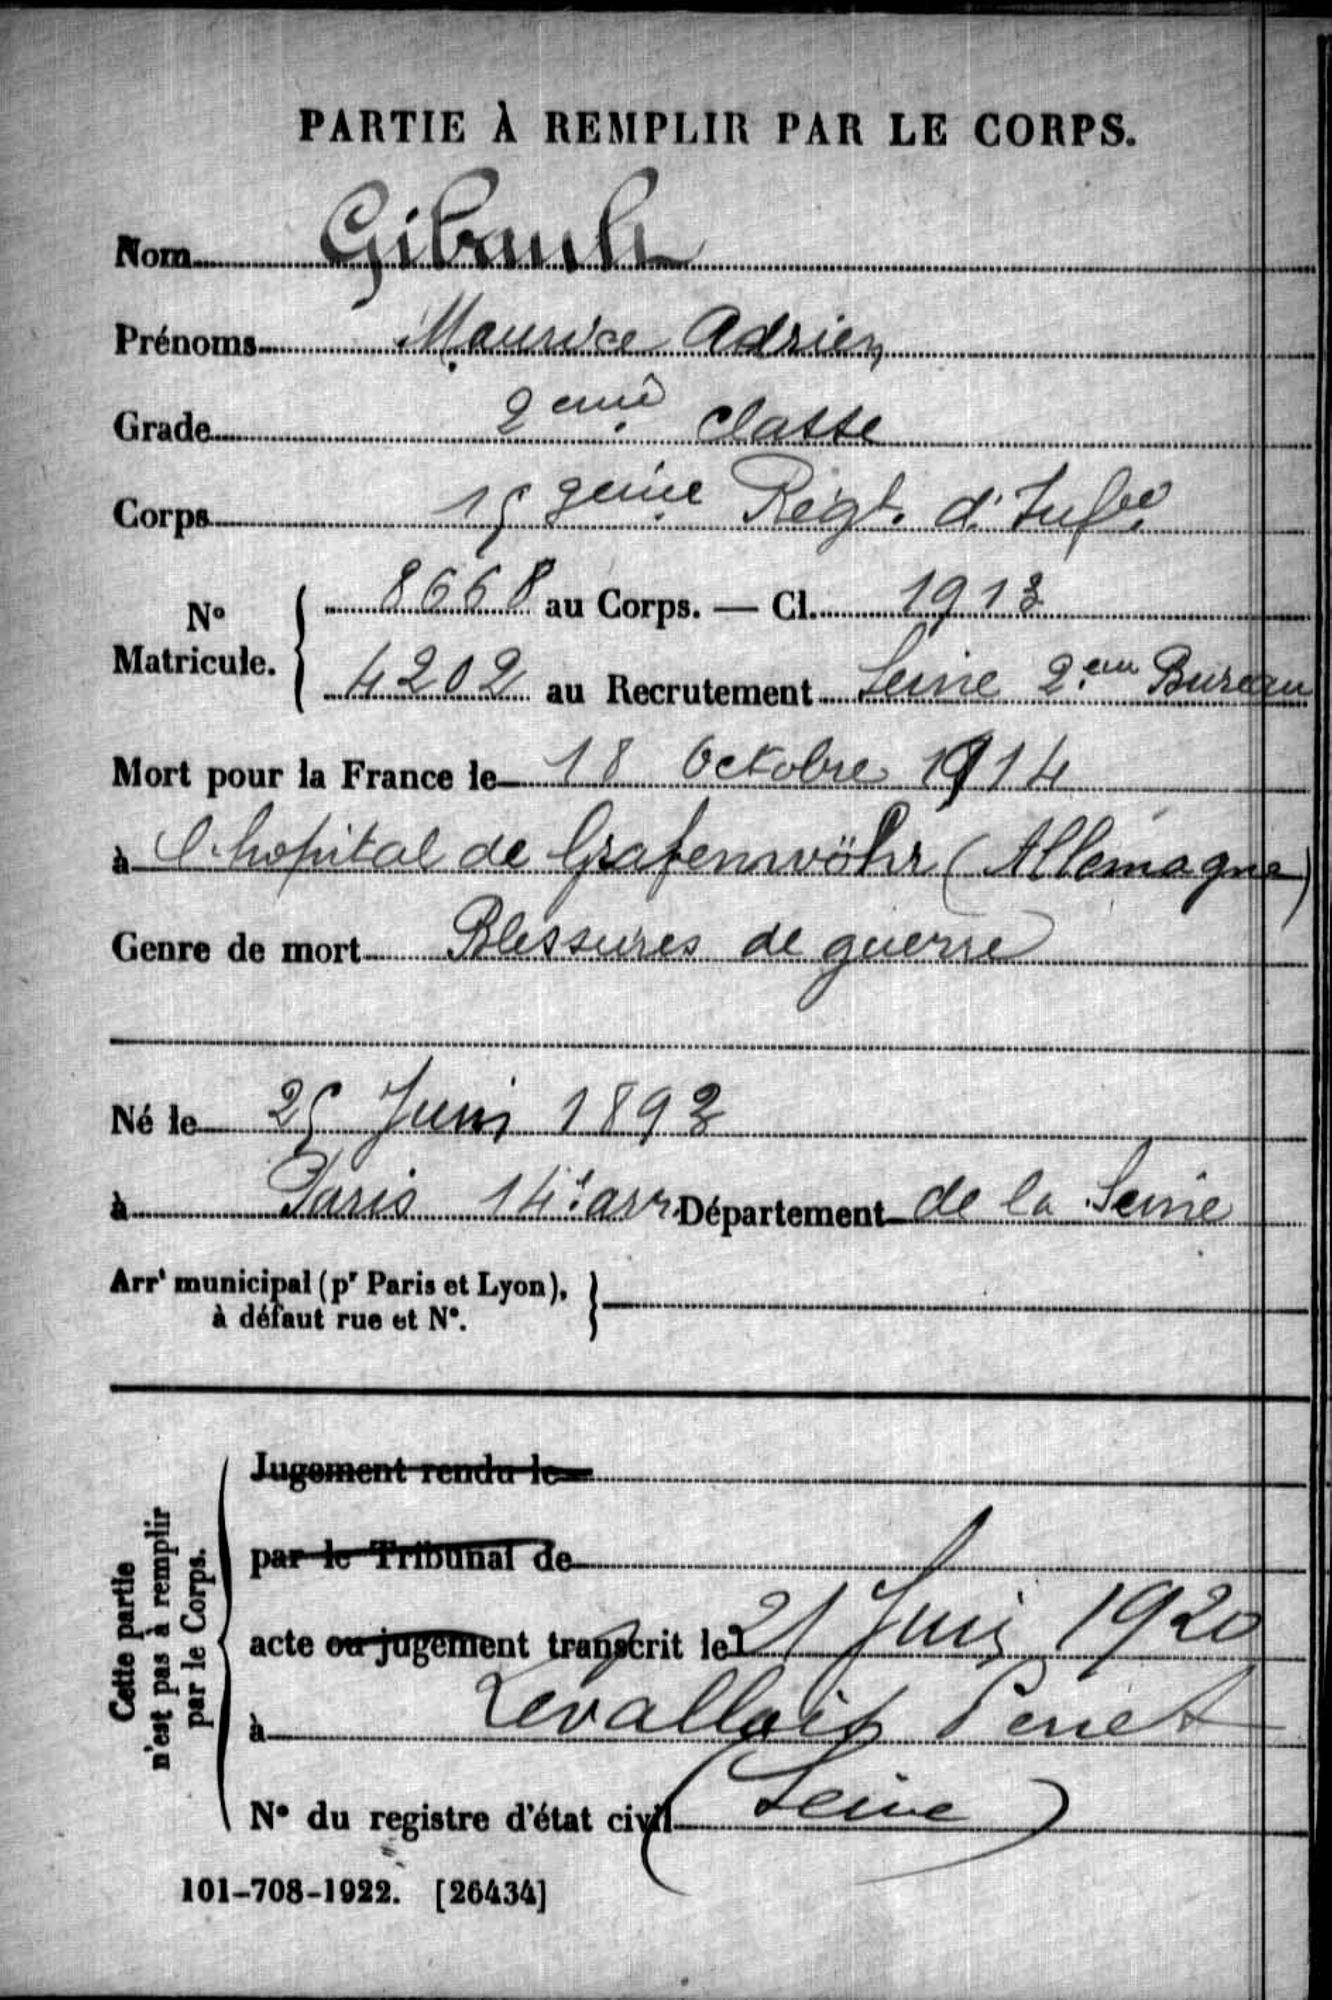 PARTIE À REMPLIR PAR LE CORPS.
Nom Gibault
Prénoms Maurice Adrien
Grade 2eme classe
Corps 153eme Régt. d'Infie
No Matricule. 8668 au Corps. — Cl. 1913
4202 au Recrutement Seine 2.eme Bureau
Mort pour la France le 18 Octobre 1914
à l'hopital de Grafenwöhr (Allemagne)
Genre de mort Blessures de guerre
Né le 25 Juin 1893
à Paris 14e arr. Département de la Seine
Arrt municipal (pr Paris et Lyon),
à défaut rue et N°.
Cette partie
n'est pas à remplir
par le Corps.
Jugement rendu le
par le Tribunal de
acte ou jugement transcrit le 21 Juin 1920
à Levallois Perret
N° du registre d'état civil (Seine)
101-708-1922. [26434]